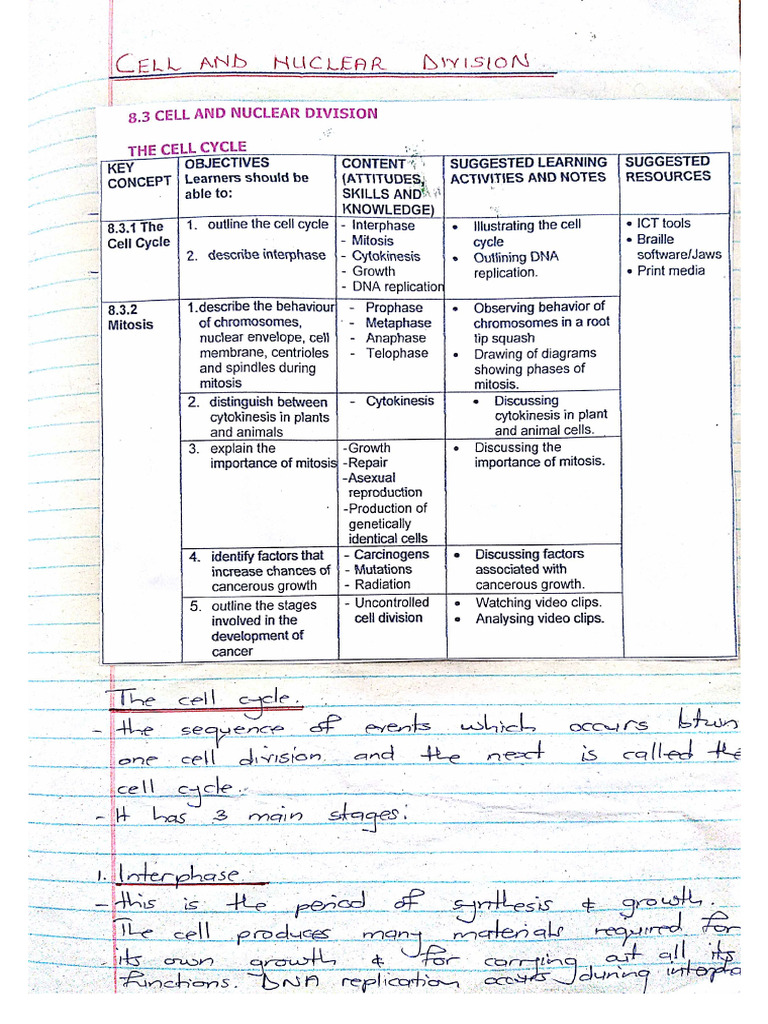 CELL AND NUCLEAR DIVISION
8.3 CELL AND NUCLEAR DIVISION
THE CELL CYCLE
KEY CONCEPT
OBJECTIVES
Learners should be able to:
CONTENT
(ATTITUDES,
SKILLS AND
KNOWLEDGE)
SUGGESTED LEARNING
ACTIVITIES AND NOTES
SUGGESTED
RESOURCES
8.3.1 The
Cell Cycle
1. outline the cell cycle
2. describe interphase
- Interphase
- Mitosis
- Cytokinesis
- Growth
- DNA replication
• Illustrating the cell
cycle
• Outlining DNA
replication.
• ICT tools
• Braille
software/Jaws
• Print media
8.3.2
Mitosis
1.describe the behaviour
of chromosomes,
nuclear envelope, cell
membrane, centrioles
and spindles during
mitosis
- Prophase
- Metaphase
- Anaphase
- Telophase
• Observing behavior of
chromosomes in a root
tip squash
• Drawing of diagrams
showing phases of
mitosis.
2. distinguish between
cytokinesis in plants
and animals
- Cytokinesis
• Discussing
cytokinesis in plant
and animal cells.
3. explain the
importance of mitosis
-Growth
-Repair
-Asexual
reproduction
-Production of
genetically
identical cells
• Discussing the
importance of mitosis.
4. identify factors that
increase chances of
cancerous growth
- Carcinogens
- Mutations
- Radiation
• Discussing factors
associated with
cancerous growth.
5. outline the stages
involved in the
development of
cancer
- Uncontrolled
cell division
• Watching video clips.
• Analysing video clips.
The cell cycle.
- the sequence of events which occurs btwn
one cell division and the next is called the
cell cycle.
- It has 3 main stages:
1. Interphase
- this is the period of synthesis & growth.
The cell produces many materials required for
- its own growth & for carrying out all its
functions. DNA replication occurs during interpha